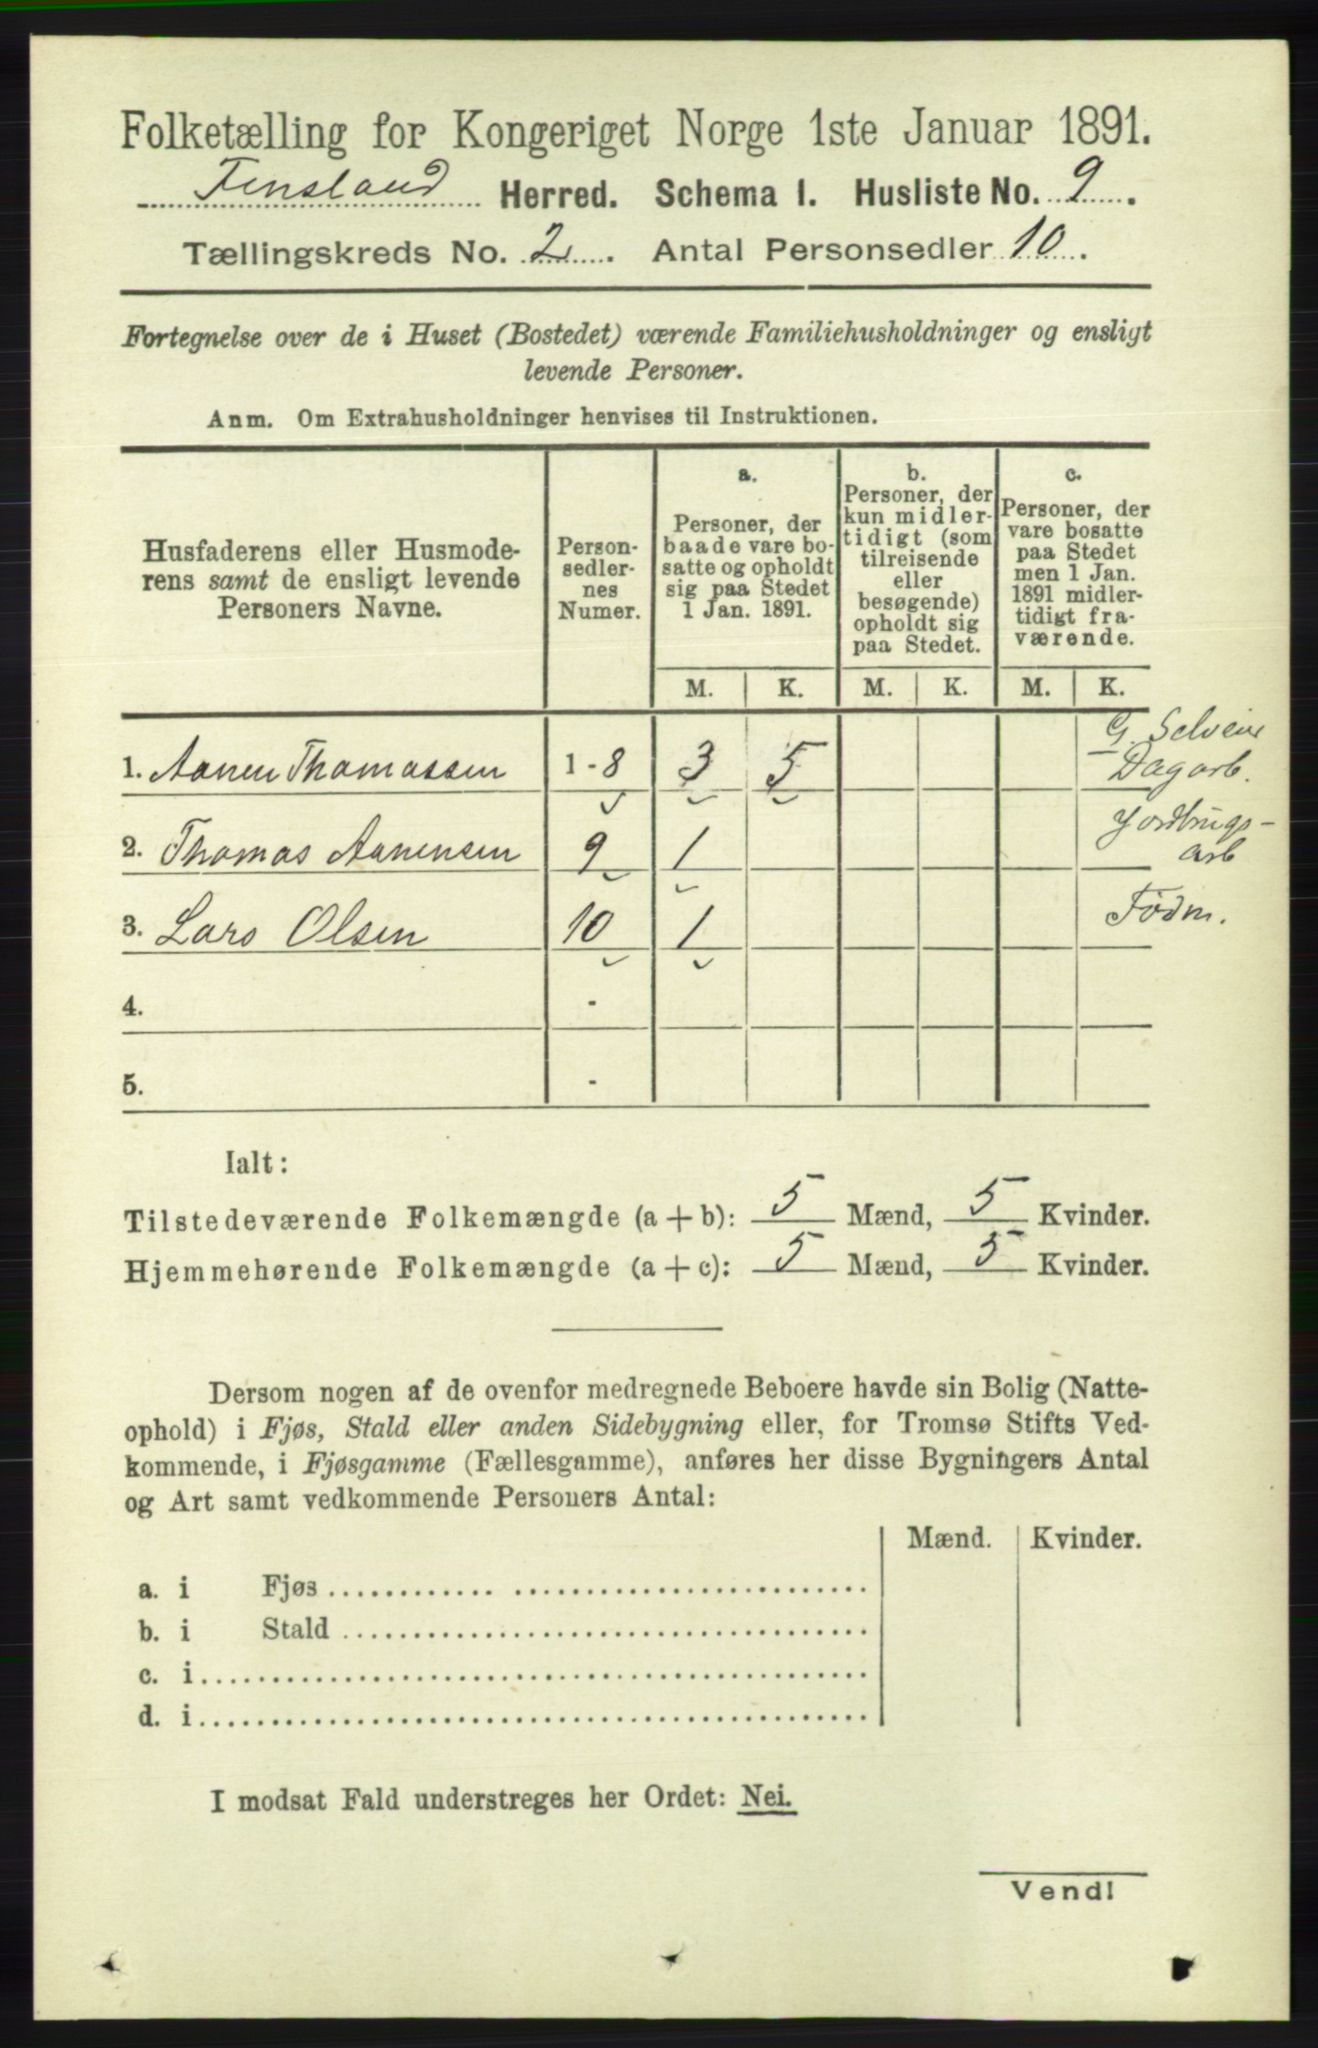 Folketælling for Kongeriget Norge 1ste Januar 1891.
Finsland Herred. Schema I. Husliste No. 9.
Tællingskreds No. 2. Antal Personsedler 10.
Fortegnelse over de i Huset (Bostedet) værende Familiehusholdninger og ensligt
levende Personer.
Anm. Om Extrahusholdninger henvises til Instruktionen.
Husfaderens eller Husmode-
rens samt de ensligt levende
Personers Navne.
Person-
sedler-
nes
Numer.
a.
Personer, der
baade vare bo-
satte og opholdt
sig paa Stedet
1 Jan. 1891.
b.
Personer, der
kun midler-
tidigt (som
tilreisende
eller
besøgende)
opholdt sig
paa Stedet.
c.
Personer, der
vare bosatte
paa Stedet
men 1 Jan.
1891 midler-
tidigt fra-
værende.
M. K. M. K. M. K.
1. Aanen Thomassen 1 - 8 3 5 G. Selveier
Dagarb.
2. Thomas Aanensen 9 1 Jordbrugs-
arb
3. Lars Olsen 10 1 Födm.
4. -
5. -
Ialt:
Tilstedeværende Folkemængde (a + b): 5 Mænd, 5 Kvinder.
Hjemmehørende Folkemængde (a + c): 5 Mænd, 5 Kvinder.
Dersom nogen af de ovenfor medregnede Beboere havde sin Bolig (Natte-
ophold) i Fjøs, Stald eller anden Sidebygning eller, for Tromsø Stifts Ved-
kommende, i Fjøsgamme (Fællesgamme), anføres her disse Bygningers Antal
og Art samt vedkommende Personers Antal:
Mænd. Kvinder.
a. i Fjøs
b. i Stald
c. i
d. i
I modsat Fald understreges her Ordet: Nei.
Vend!